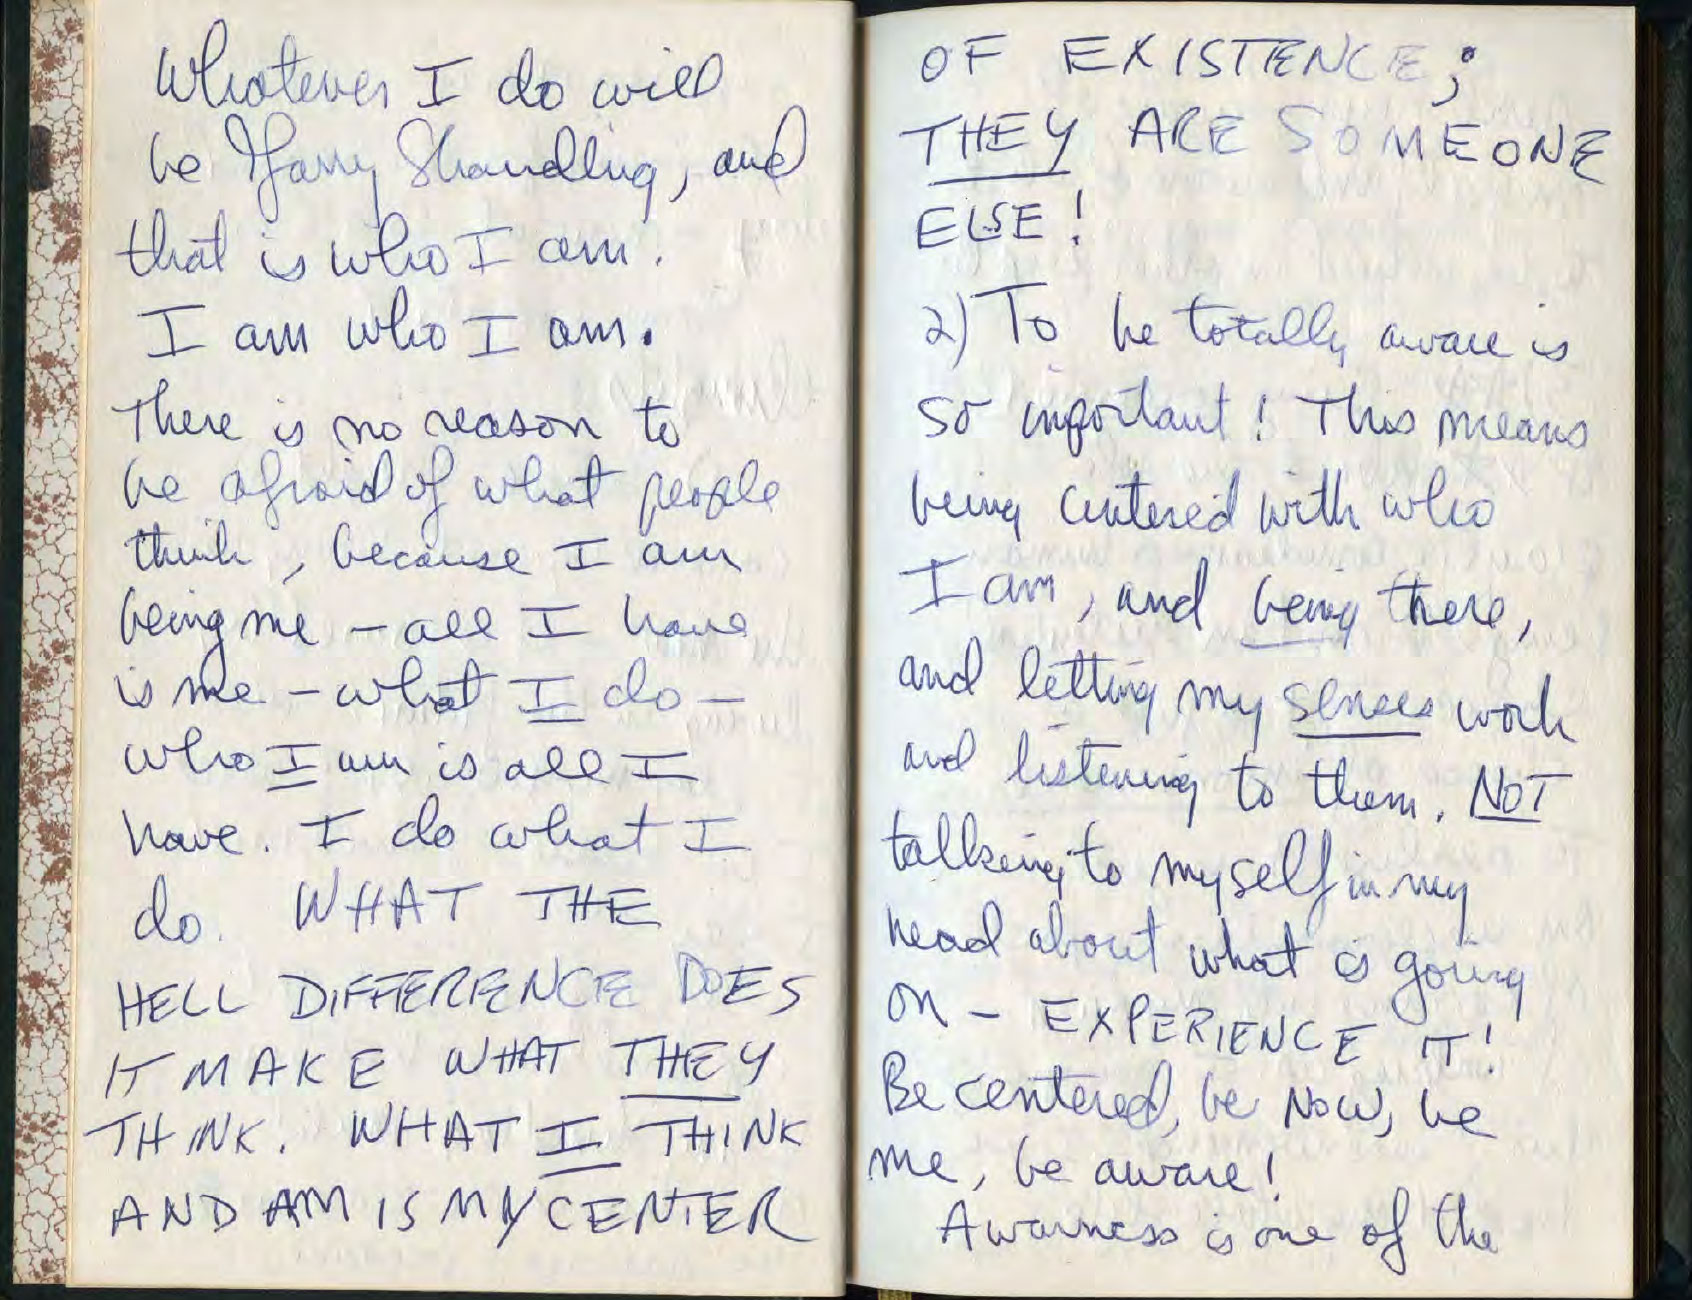 Whatever I do will
be Garry Shandling, and
that is who I am.
I am who I am.
There is no reason to
be afraid of what people
think, because I am
being me – all I have
is me – what I do –
who I am is all I
have. I do what I
do. WHAT THE
HELL DIFFERENCE DOES
IT MAKE WHAT THEY
THINK. WHAT I THINK
AND AM IS MY CENTER
OF EXISTENCE;
THEY ARE SOMEONE
ELSE!
2) To be totally aware is
so important! This means
being centered with who
I am, and being there,
and letting my senses work
and listening to them. NOT
talking to myself in my
head about what is going
on – EXPERIENCE IT!
Be centered, be NOW, be
me, be aware!
Awarness is one of the